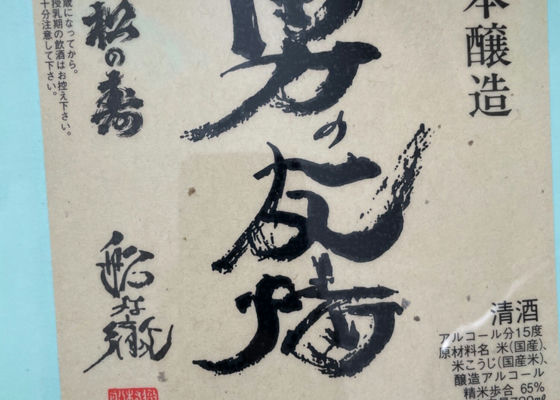 本醸造
男の友情
松の寿
歳になってから。
授乳期の飲酒はお控え下さい。
十分注意して下さい。
清酒
アルコール分15度
原材料名 米(国産)、
米こうじ(国産米)、
醸造アルコール
精米歩合 65%
720㎖